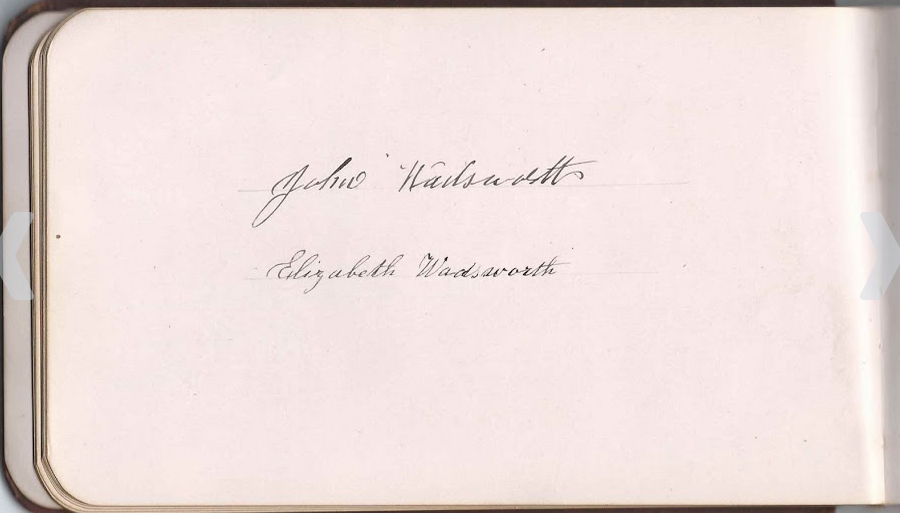 John Wadsworth
Elizabeth Wadsworth